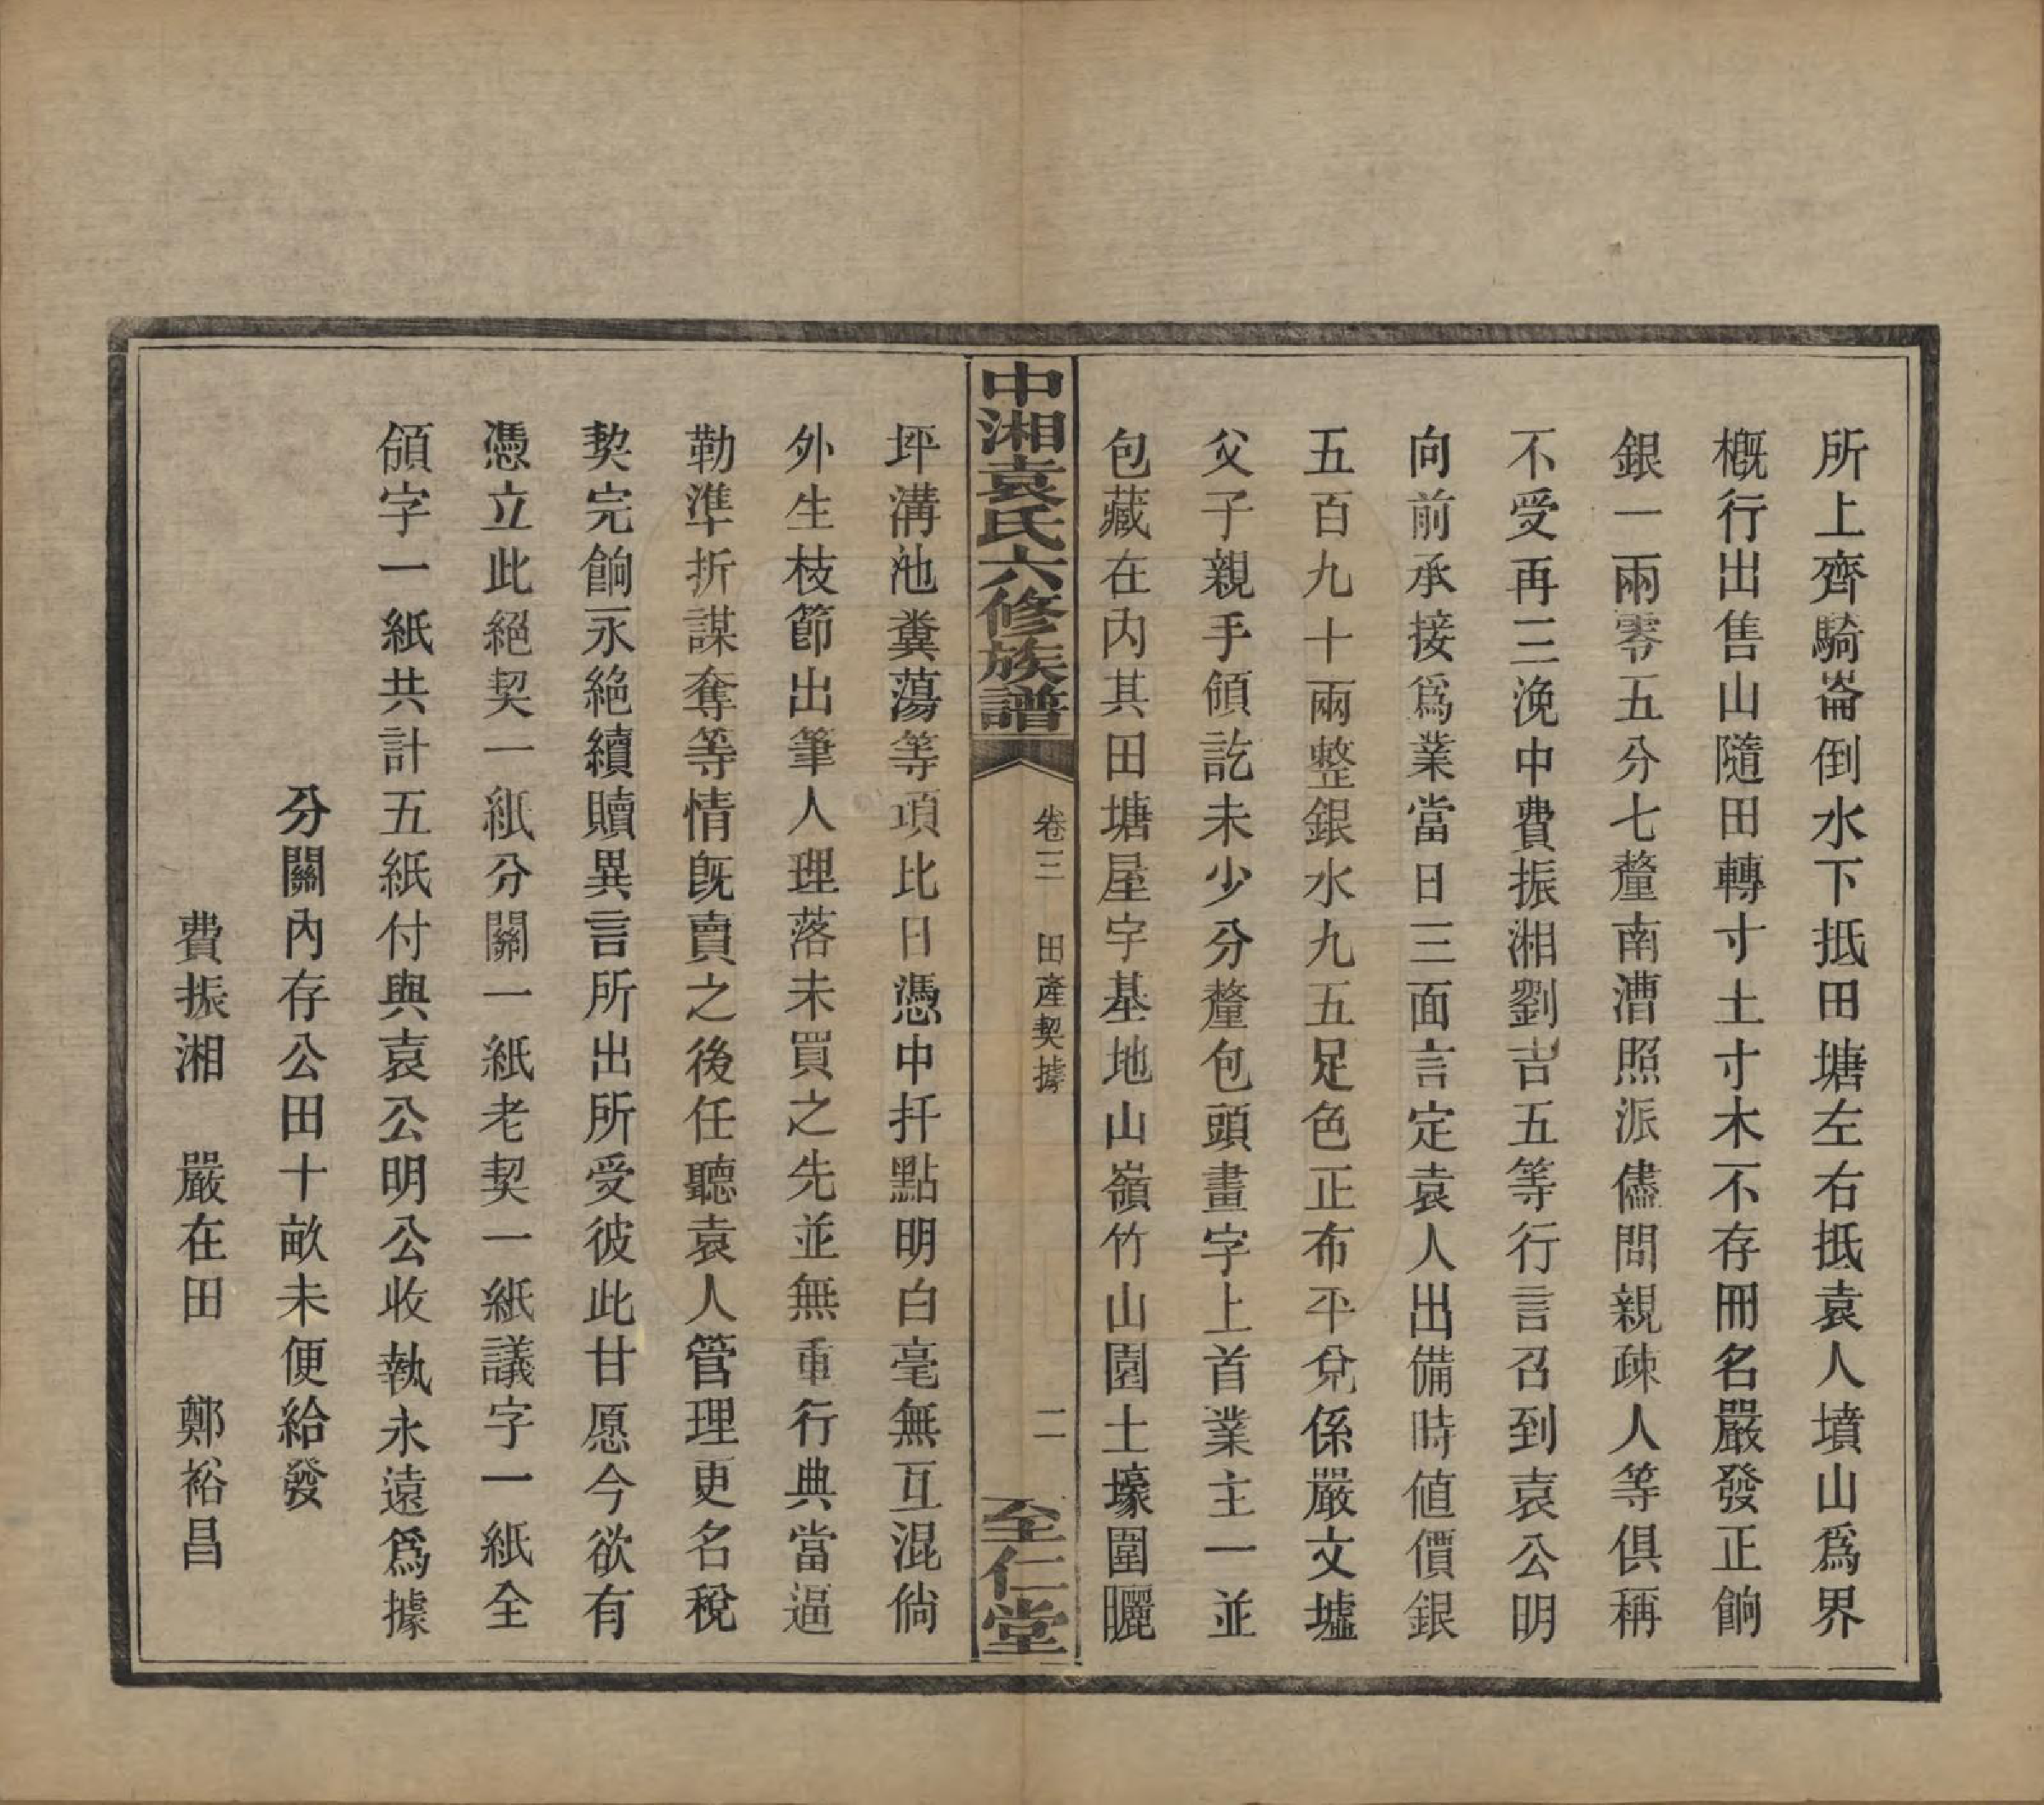 所上齊騎崙倒水下抵田塘左右抵袁人墳山爲界
概行出售山隨田轉寸土寸木不存冊名嚴發正餉
銀一兩零五分七釐南漕照派儘問親疎人等俱稱
不受再三浼中費振湘劉吉五等行言召到袁公明
向前承接爲業當日三面言定袁人出備時値價銀
五百九十兩整銀水九五足色正布平兌係嚴文墟
父子親手領訖未少分釐包頭畫字上首業主一並
包藏在內其田塘屋宇基地山嶺竹山園土壕圍曬
中湘袁氏六修族譜
卷三 田產契據 二
至仁堂
坪溝池糞蕩等項比日憑中扦點明白毫無互混倘
外生枝節出筆人理落未買之先並無重行典當逼
勒準折謀奪等情旣賣之後任聽袁人管理更名稅
契完餉永絶續贖異言所出所受彼此甘愿今欲有
憑立此絕契一紙分關一紙老契一紙議字一紙全
領字一紙共計五紙付與袁公明公收執永遠爲據
分關內存公田十畝未便給發
費振湘 嚴在田 鄭裕昌